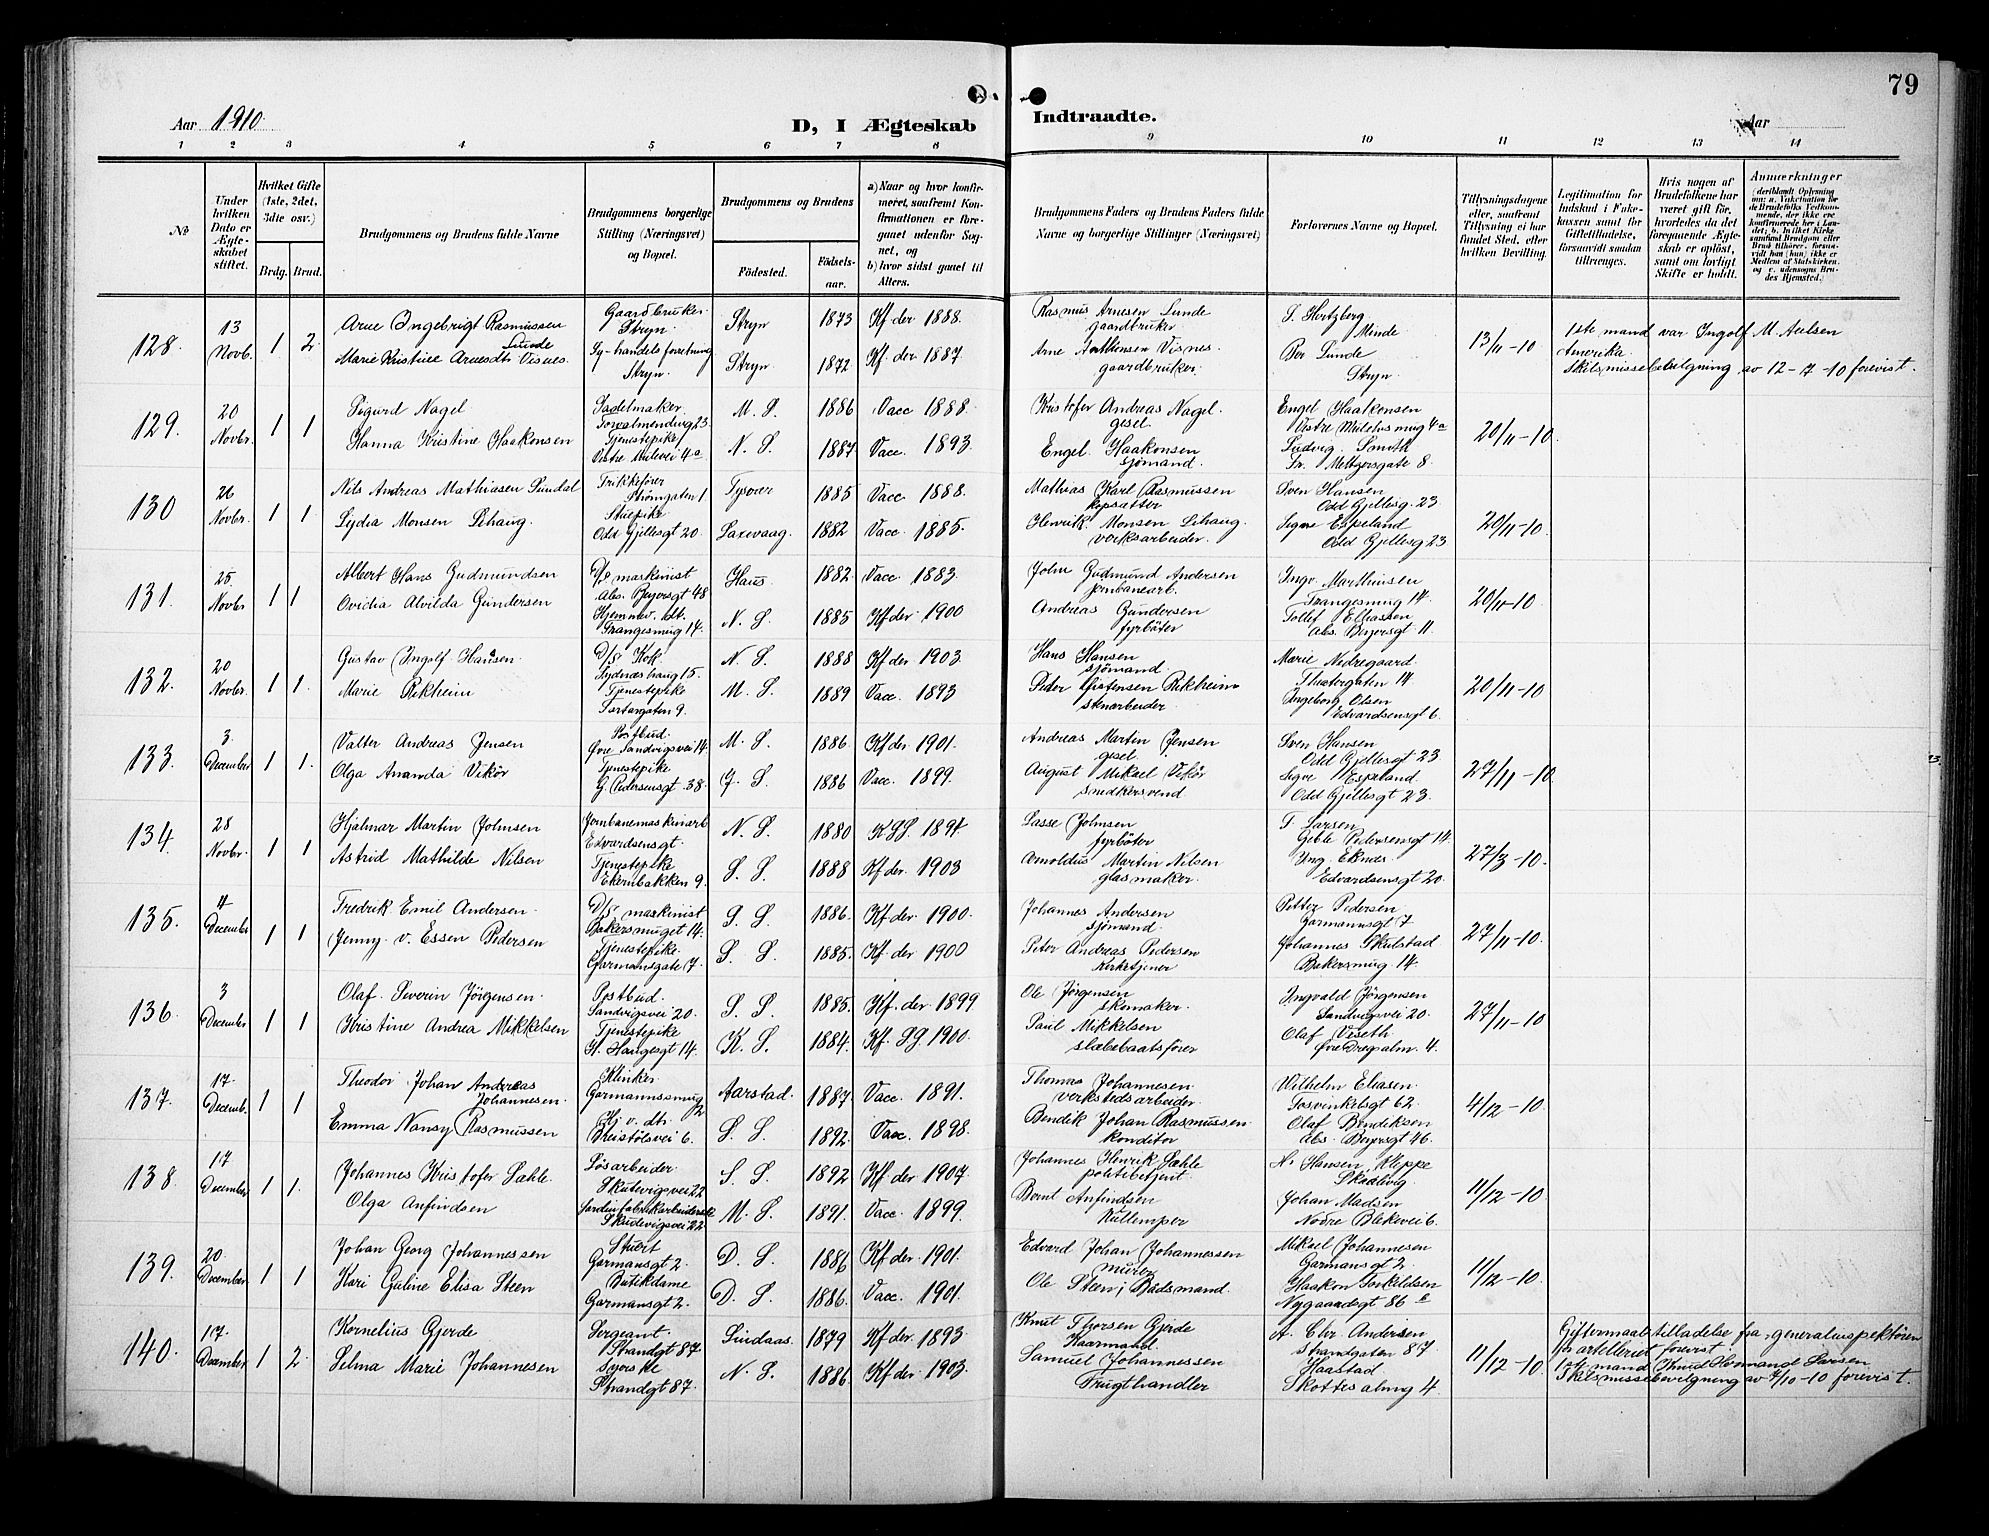 79
Aar 1910.
D, I Ægteskab Indtraadte.
Aar
1 2 3 4 5 6 7 8 9 10 11 12 13 14
№
Under hvilken Dato er Ægteskabet stiftet.
Hvilket Gifte (1ste, 2det, 3die osv.)
Brdg. Brud.
Brudgommens og Brudens fulde Navne
Brudgommens borgerlige Stilling (Næringsvei) og Bopæl.
Brudgommens og Brudens
Fødested.
Fødselsaar.
a) Naar og hvor konfirmeret, saafremt Konfirmationen er foregaaet udenfor Sognet, og
b) hvor sidst gaaet til Alters.
Brudgommens Faders og Brudens Faders fulde Navne og borgerlige Stillinger (Næringsvei)
Forlovernes Navne og Bopæl.
Tillysningsdagene eller, saafremt Tillysning ei har fundet Sted, efter hvilken Bevilling.
Legitimation for Indskud i Enkekassen samt for Giftetilladelse, forsaavidt saadan tiltrænges.
Hvis nogen af Brudefolkene har været gift før, hvorledes da det foregaaende Ægteskab er opløst, samt om lovligt Skifte er holdt.
Anmærkninger
128. 13 Novb. 1 2
Arne Ingebrigt Rasmussen Lunde
Gaardbruker Stryn. Stryn 1873 Kf der 1888.
Rasmus Arnesen Lunde gaardbruker
S. Hertzberg Minde
13/11-10
1ste mand var Ingolf M. Aulsen
Marie Kristine Arnesdtr Visnes
Sy-handels forretning Stryn. Stryn 1872 Kf der 1887.
Arne Visnes gaardbruker.
Per Lunde Stryn
Amerika.
Skilsmissebevilgning av 12-7-10 forevist.
129. 20 Novbr. 1 1
Sigurd Nagel
Sadelmaker 23 M. S. 1886 Vacc 1888.
Kristofer Andreas Nagel. gesel.
Engel Haakonsen Vestre Mulelvsmug 4a
20/11-10.
Hanna Kristine Haakonsen
Tjenestepike Vestre 4a N. S. 1887 Vacc. 1893.
Engel Haakonsen sjømand.
Ludvig Smith Fr. Meltzersgate 8.
130 26 Novbr. 1 1.
Nils Andreas Mathiasen Sundal
Trikkefører Strømgaten 1 Tysvær 1885 Vacc. 1888.
Mathias Karl Rasmussen
Sven Hansen Odd Gjellesg. 23
20/11-10.
Lydia Monsen Lihaug.
Stuepike Odd Gjellesgt 20. Laxevaag. 1882 Vacc 1885.
Henrik Monsen Lihaug. verksarbeider.
Signe Espeland Odd Gjellesg 23
131. 25. Novbr 1 1
Albert Hans Gudmundsen
D/s maskinist Abs. Beyersgt 48 Haus 1882. Vacc. 1883.
John Gudmund Andersen jernbanearb.
Ingv. Marthinsen Trangesmug 14.
20/11-10
Ovidia Alvilda Gundersen
Hjemmev. dt. Trangesmug 14. N. S. 1885 Kf der 1900
Andreas Gundersen fyrbøter
Tollef Eliassen Abs. Beyersgt 11.
132. 20 Novbr. 1 1.
Gustav Ingolf Hansen.
D/s Kok 15. N. S. 1888 Kf der 1903.
Hans Hansen sjømand.
Marie Nedregaard. Theatergaten 14
20/11-10
Marie Rikheim
Tjenestepike 9. M. S. 1889 Vacc. 1893
Peder Rikheim stenarbeider.
Ingeborg Olsen Edvardsensgt 6.
133. 3. December 1 1.
Valter Andreas Jensen
Postbud. Øvre Sandvigsvei 14. M. S. 1886. Kf der 1901.
Andreas Martin Jensen gesel.
Sven Hansen Odd Gjellesgt 23
27/11-10
Olga Ananda Vikør
Tjenestepike G. Pedersensgt. 38. J. S. 1886 Vacc. 1899.
August Mikael Vikør snedkersvend
Signe Espeland. Odd Gjellesgt 23.
134. 28 Novbr. 1 1
Hjalmar Martin Johnsen
Edvardsensgt. N. S. 1880 1894
Lasse Johnsen fyrbøter
T. Larsen Geble Pedersensgt 14.
27/3-10.
Astrid Mathilde Nilsen
Tjenestepike 9. S. S. 1888 Kf der 1903
Arnoldus Martin Nilsen glasmaker.
Ing. Eknes Edvardsensgt 20.
135. 4 December 1 1
Fredrik Emil Andersen
D/s maskinist Bakersmuget 14. S. S. 1886. Kf der 1900.
Johannes Andersen sjømand.
Petter Pedersen Garmannsgt 7
27/11-10.
Jenny v. Essen Pedersen
Tjenestepike Garmansgate 7. S. S. 1885. Kf der 1900
Peter Andreas Pedersen Kirketjener
Johannes Skulstad Bakersmug 14.
136. 3 December 1 1
Olaf Severin Jörgensen.
Postbud. Sandvigsvei 20. S. S. 1885. Kf. der 1899
Ole Jörgensen skomaker.
Ingvald Jörgensen Sandvigsvei 20.
27/11-10
Kristine Andrea Mikkelsen
Tjenestepike H. Haugesgt 14. K. S. 1884. Kf. 1900.
Paul Mikkelsen slæbebaatsfører
Olaf Viseth Øvre Dregsalm. 4.
137. 17 Decemb. 1 1
Theodor Johan Andreas Johannesen.
Klinker Garmannssmug 2 Aarstad. 1887 Vacc. 1891.
Thomas Johannesen. verkstedsarbeider.
Wilhelm Eliasen. Fosvinkelsgt 62.
4/12-10.
Emma Nansy Rasmussen
Hj. v. dtr. 6. S. S. 1892. Vacc. 1898.
Bendik Johan Rasmussen. konditor.
Olaf Bendiksen Abs. Beyersgt 46.
138. 17 December 1 1.
Johannes Kristofer Sæhle.
Løsarbeider. Skutevigsvei 22 S. S. 1892 Kf der 1907
Johannes Henrik Sæhle politibetjent.
H. Hansen Kleppe Skaalvig
11/12-10.
Olga Anfindsen
Sardinfabrikarbeiderske Skudevigsvei 22 M. S. 1891. Vacc. 1899.
Bernt Anfindsen Kullemper
Johan Madsen Nødre Blekevei 6.
139. 20. December 1 1
Johan Georg Johannessen
Stuert Garmansgt 2. D. S. 1886 Kf der 1901.
Edvard Johan Johannessen murer
Mikael Johannesen Garmansgt 2.
11/12-10.
Kari Galine Elisa Steen
Butikdame Garmansgt 2. D. S. 1886. Vacc. 1901.
Ole Steen, Baadsmand.
Haakon Torkeldsen Nygaardsgt 86 b
140. 17. December 1 2.
Kornelius Gjerde
Sergeant. Strandgt 87 Lindaas. 1879 Kf der 1893.
Knut Thorsen Gjerde Kaarmand.
A. Chr. Andersen Strandgaten 87
11/12-10
Giftermaalstilladelse fra generalinspektøren for artelleriet forevist.
Selma Marie Johannesen
Syerske Strandgt 87. N. S. 1886. Kf der 1903.
Samuel Johannessen Frugthandler
Haastad Skottesalmg 4
1ste mand Knud Hermand Larsen
Skilsmissebevilgning av 4/10-10 forevist.